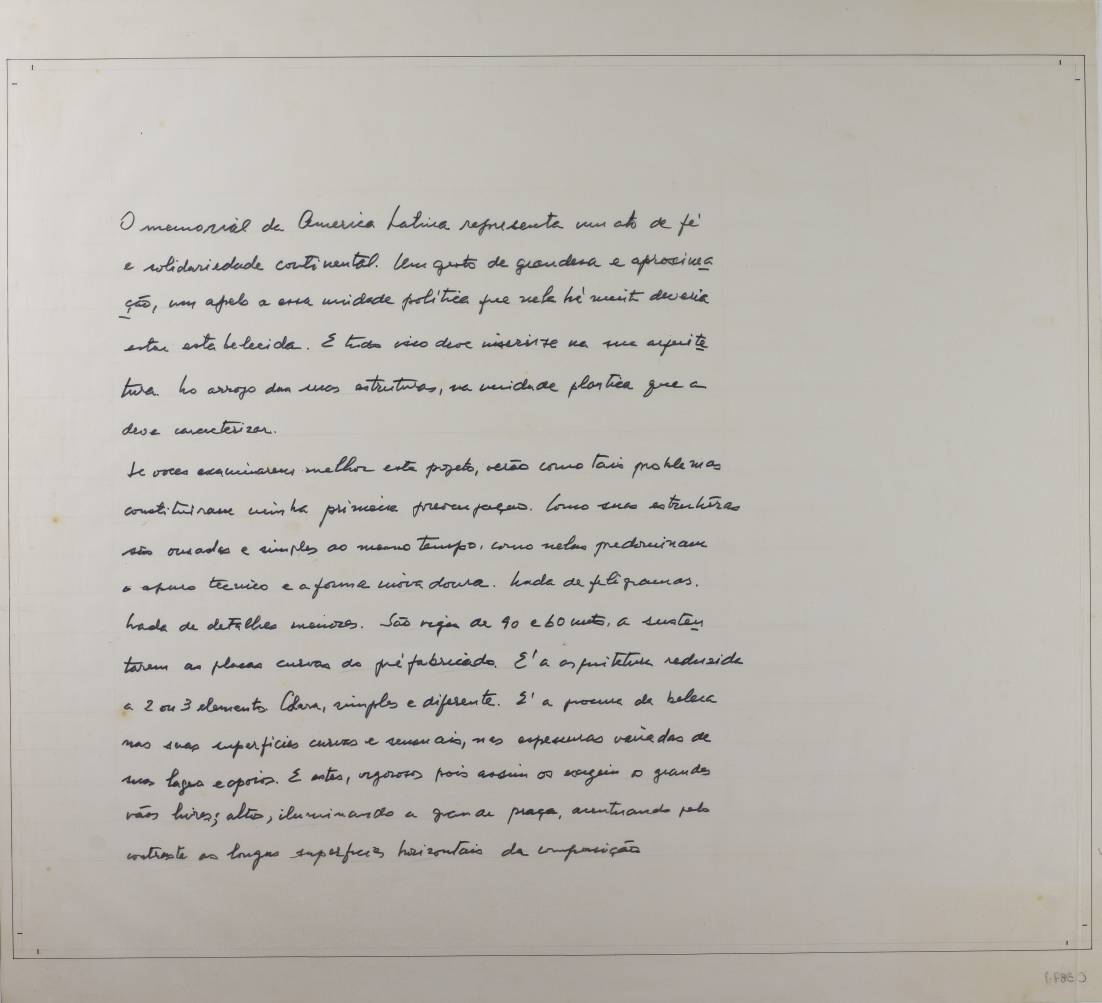 O memorial da America Latina representa um ato de fé
e solidariedade continental. Um gesto de grandesa e aproxima
ção, um apelo a essa unidade política que nela há muito deveria
estar estabelecida. E tudo isso deve inserir-se na sua arquite
tura. No arrojo das suas estruturas, na unidade plastica que a
deve caracterizar.
Se voces examinarem melhor este projeto, verão como tais problemas
constituiram minha primeira preocupação. Como suas estruturas
são ousadas e simples ao mesmo tempo, como nelas predominam
o apuro tecnico e a forma inovadoura. Nada de filigramas.
Nada de detalhes menores. São vigas de 90 e 60 mets, a susten
tarem as placas curvas do préfabricado. E' a arquitetura reduzida
a 2 ou 3 elementos. Clara, simples e diferente. E' a procura da beleza
nas suas superficies curvas e sensuais, nas espessuras variadas de
suas lages e apoios. E estes, vigorosos pois assim os exigem os grandes
vãos livres; altos, iluminando a grande praça, acentuando pelo
contraste as longas superficies horizontais da composição